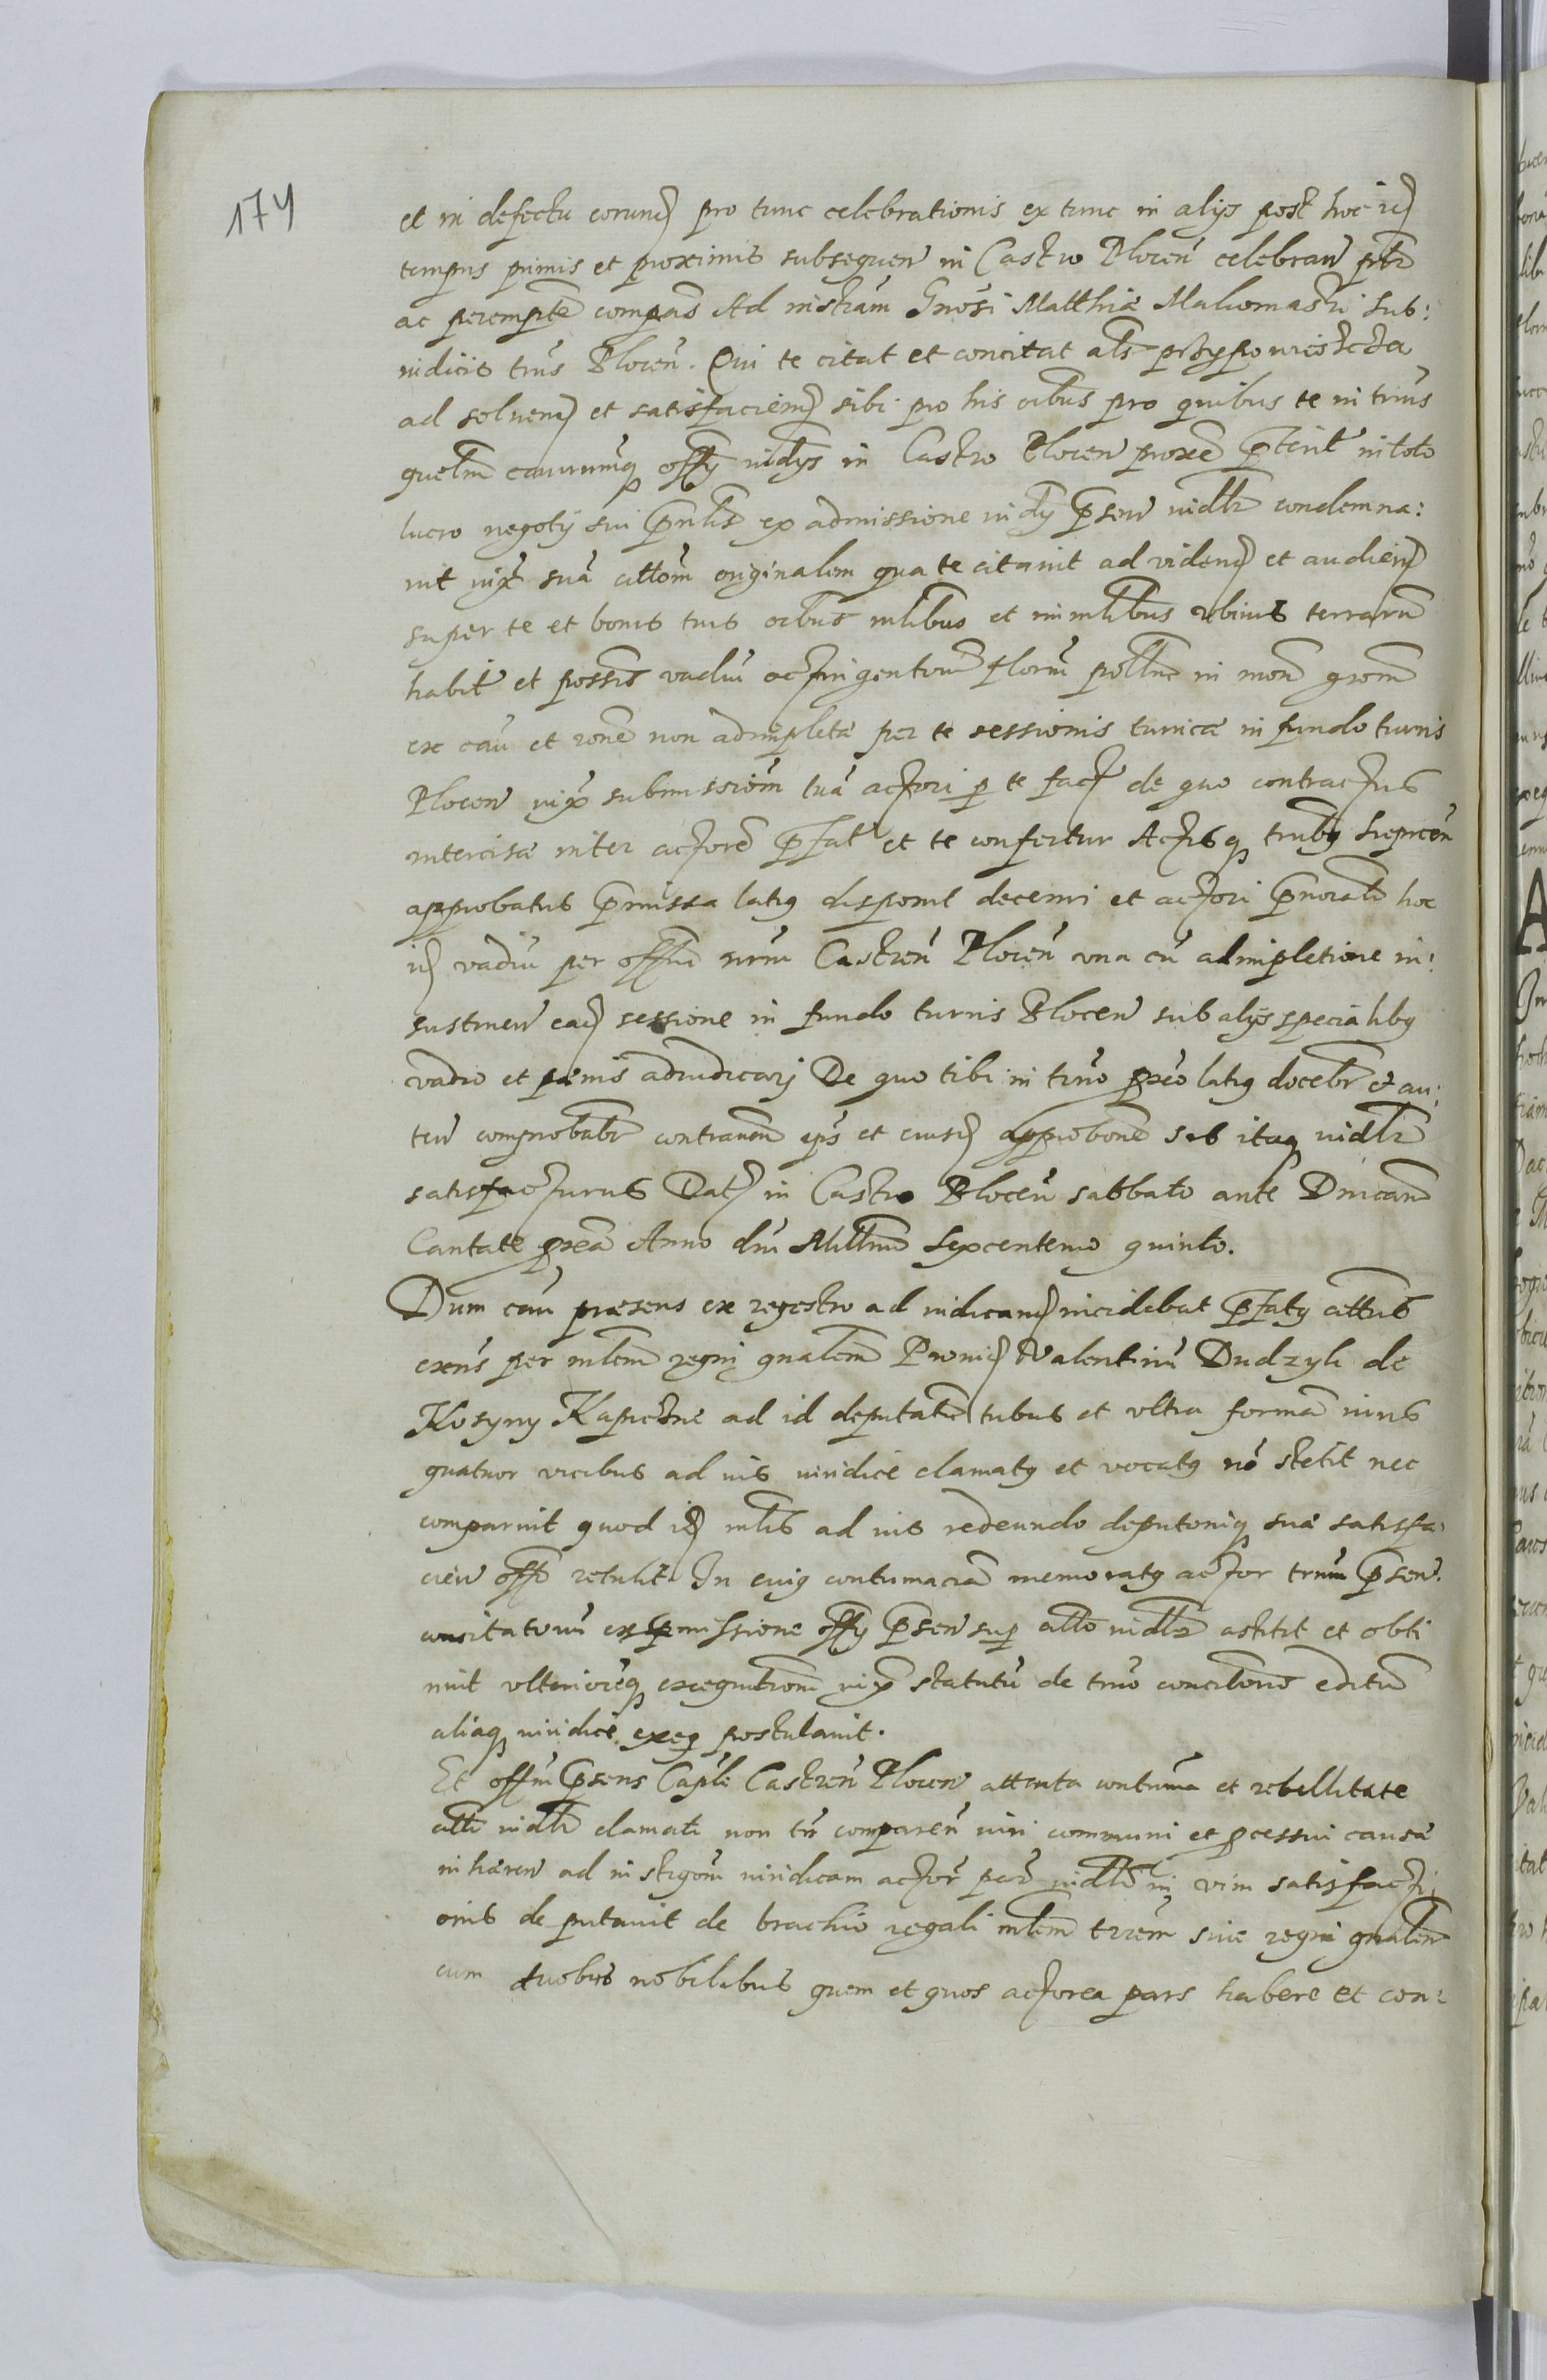 174
et in defectu eorund pro tunc celebrationis ex tunc in alijs post hoc id
tempus primis et proximis subsequen in Castro Plocen celebran prtr
ac perempte compas Ad instiam Gnosi Matthiæ Maliomaski Sub:
iudicis trris Plocen. Qui te citat et concitat als przypowiescza
ad soluend et satisfaciend sibi pro his oibus pro quibus te in trnis
querlm causarumq offy iudys in Castro Plocen proxe pterit in toto
lucro negotij sui prnlis ex admissione iudy psen vidlr condemna:
uit iuxt suã cittom originalem qua te citauit ad videnđ et audienđ
super te et bonis tuis oibus mlibus et immlibus vbiuis terrarũ
habit et possis vadiũ actingentorũ floruũ polln in mon grom
ex caũ et rone non adimpletæ per te sessionis turricæ in fundo turris
Plocen iux submissiom tuã actori p te fact de quo contractus
intercisæ inter actore pfat et te confertur Actisq trnibq Srepcen
approbatus pmissa latiq disponit decerni et actori pnorati hoc
id vadiũ per offm nrm Castren Plocen vna cũ adimpletione in:
sustinen ead sessione in fundo turris Plocen sub alijs specialibq
vadio et pænis adiudicarj De quo tibi in trno pxeo latiq docebr et au:
ten comprobabr contrauom eps et eiusd approbone Sis itaq vidlr
satisfacturus Dat in Castro Plocen sabbato ante Dnicam
Cantate pxea Anno dni Millmo Sexcentemo quinto.
Dum caũ præsens ex regestro ad iudicand incidebat pfatq cittus
exns per mlem regni gnalem Prouid Valentinũ Dudzyk de
Kosyny Kapiczne ad id deputatũ tubus et vltra formã iuris
quatuor vicibus ad ius iuridice clamatq et vocatq nõ stetit nec
comparuit quod id mlis ad ius redeundo deputoniq suæ satisfa:
cien offo retulit In cuiq contumaciã memoratq actor trnũ psen.
concitatoriũ ex pmissione offy psen sup citto vidlr astitit et obti
nuit vlterioreq exequtionẽ iux statutũ de trno concitonis editũ
aliaq iuridice exeq postulauit.
Et offm psens Caple Castren Plocen attenta contuma et rebellitate
citti vidlr clamati non tn comparen iuri communi et pcessui causæ
inhæren ad instigom iuridicam actor part vidlr in vim satisfacti
onis deputauit de brachio regali mlem trrem siue regni gnalem
cum duobus nobilibus quem et quos actorea pars habere et con: